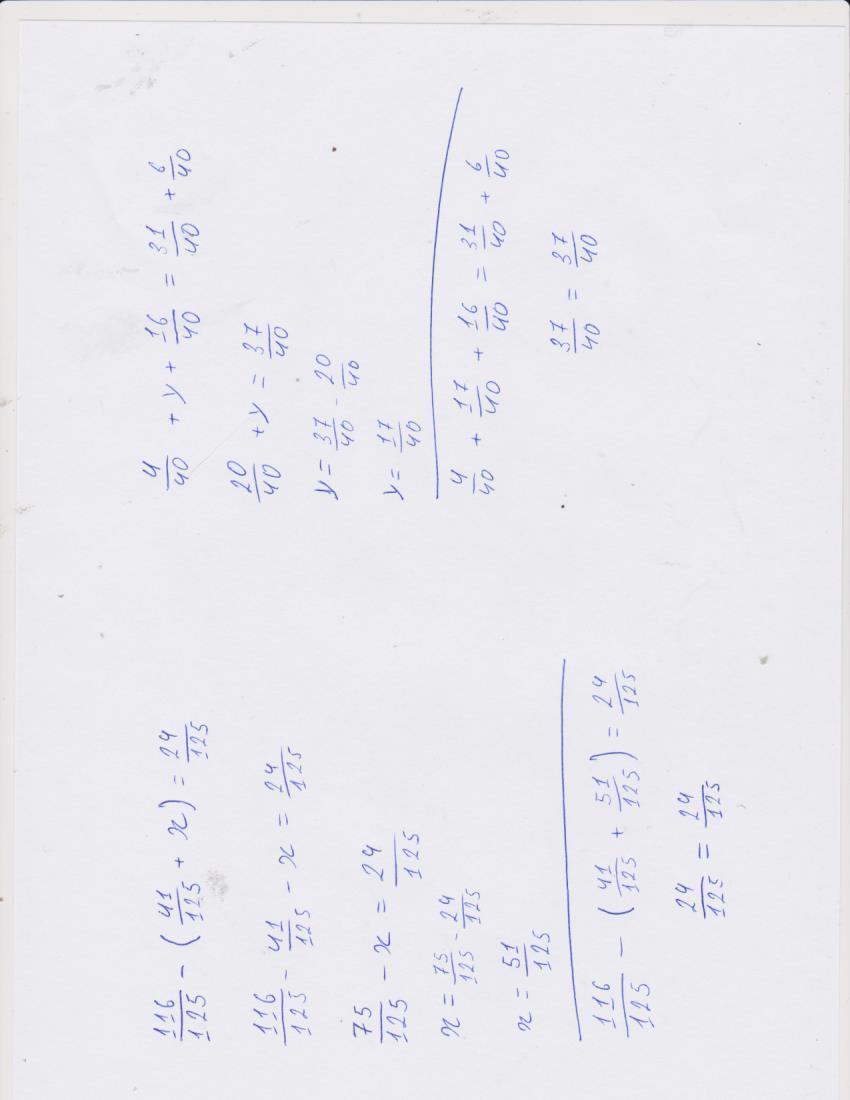 116/125 - (41/125 + x) = 24/125
116/125 - 41/125 - x = 24/125
75/125 - x = 24/125
x = 75/125 - 24/125
x = 51/125
116/125 - (41/125 + 51/125) = 24/125
24/125 = 24/125
4/40 + y + 16/40 = 31/40 + 6/40
20/40 + y = 37/40
y = 37/40 - 20/40
y = 17/40
4/40 + 17/40 + 16/40 = 31/40 + 6/40
37/40 = 37/40